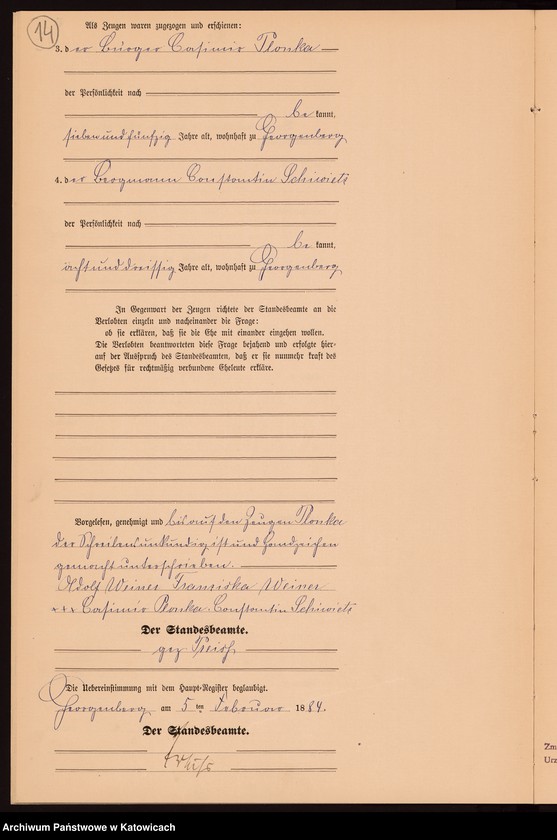 14
Als Zeugen waren zugezogen und erschienen:
3. der Bürger Casimir Plonka
der Persönlichkeit nach
be kannt,
siebenundfünfzig Jahre alt, wohnhaft zu Georgenberg
4. der Bergmann Constantin Schiwietz
der Persönlichkeit nach
be kannt,
achtunddreissig Jahre alt, wohnhaft zu Georgenberg
In Gegenwart der Zeugen richtete der Standesbeamte an die
Verlobten einzeln und nacheinander die Frage:
ob sie erklären, daß sie die Ehe mit einander eingehen wollen.
Die Verlobten beantworteten diese Frage bejahend und erfolgte hier-
auf der Ausspruch des Standesbeamten, daß er sie nunmehr kraft des
Gesetzes für rechtmäßig verbundene Eheleute erkläre.
Vorgelesen, genehmigt und bis auf den Zeugen Plonka
der Schreibensunkundig ist und Handzeichen
gemacht unterschrieben.
Adolf Weiner Franziska Weiner
+++ Casimir Plonka. Constantin Schiwietz
Der Standesbeamte.
gez
Die Uebereinstimmung mit dem Haupt-Register beglaubigt.
Georgenberg am 5 ten Februar 1884.
Der Standesbeamte.
Zm
Urz
Archiwum Państwowe w Katowicach